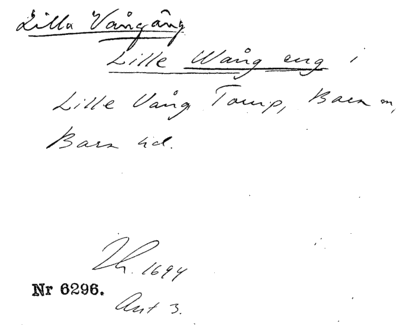 Lilla Vångäng
Lille Wång eng i
Lille Vång Tomp, Bara sn,
Bara hd.
Lh. 1694
Nr 6296.
Ant 3.